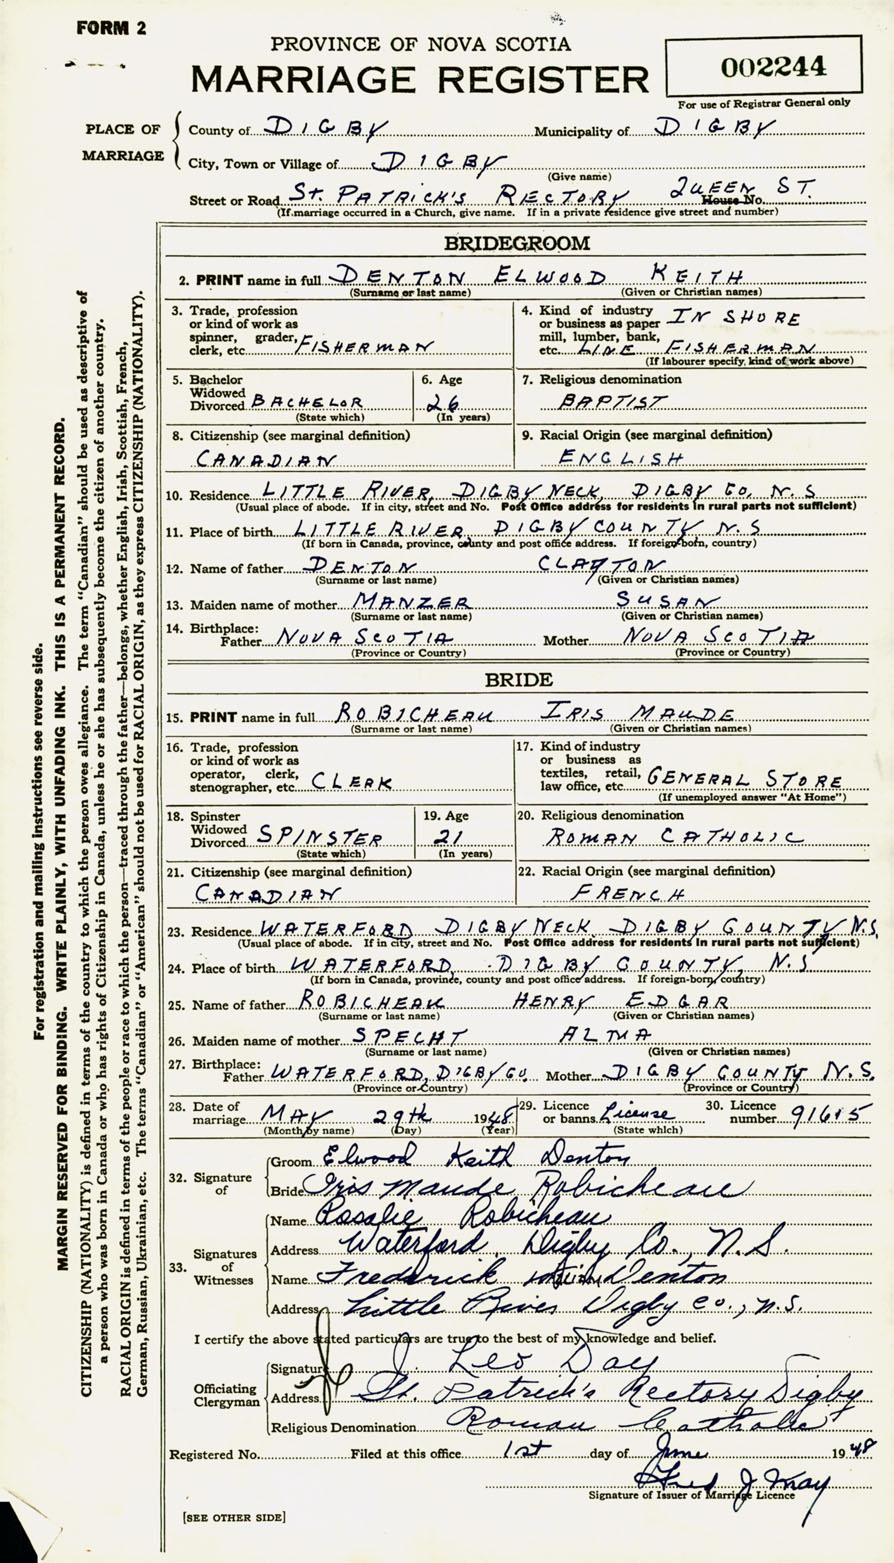 FORM 2
PROVINCE OF NOVA SCOTIA
MARRIAGE REGISTER
002244
For use of Registrar General only
PLACE OF MARRIAGE
County of DIGBY Municipality of DIGBY
City, Town or Village of DIGBY
(Give name)
Street or Road St. PATRICK'S RECTORY QUEEN ST. House No.
(If marriage occurred in a Church, give name. If in a private residence give street and number)
BRIDEGROOM
2. PRINT name in full DENTON ELWOOD KEITH
(Surname or last name) (Given or Christian names)
3. Trade, profession or kind of work as spinner, grader, clerk, etc. FISHERMAN
4. Kind of industry or business as paper mill, lumber, bank, etc. IN SHORE LINE FISHERMAN
(If labourer specify kind of work above)
5. Bachelor Widowed Divorced BACHELOR
(State which)
6. Age 26
(In years)
7. Religious denomination
BAPTIST
8. Citizenship (see marginal definition)
CANADIAN
9. Racial Origin (see marginal definition)
ENGLISH
10. Residence LITTLE RIVER, DIGBY NECK, DIGBY CO. N.S
(Usual place of abode. If in city, street and No. Post Office address for residents in rural parts not sufficient)
11. Place of birth LITTLE RIVER, DIGBY COUNTY N.S
(If born in Canada, province, county and post office address. If foreign-born, country)
12. Name of father DENTON CLAYTON
(Surname or last name) (Given or Christian names)
13. Maiden name of mother MANZER SUSAN
(Surname or last name) (Given or Christian names)
14. Birthplace: Father NOVA SCOTIA Mother NOVA SCOTIA
(Province or Country) (Province or Country)
BRIDE
15. PRINT name in full ROBICHEAU IRIS MAUDE
(Surname or last name) (Given or Christian names)
16. Trade, profession or kind of work as operator, clerk, stenographer, etc. CLERK
17. Kind of industry or business as textiles, retail, law office, etc. GENERAL STORE
(If unemployed answer "At Home")
18. Spinster Widowed Divorced SPINSTER
(State which)
19. Age 21
(In years)
20. Religious denomination
ROMAN CATHOLIC
21. Citizenship (see marginal definition)
CANADIAN
22. Racial Origin (see marginal definition)
FRENCH
23. Residence WATERFORD DIGBY NECK, DIGBY COUNTY N.S.
(Usual place of abode. If in city, street and No. Post Office address for residents in rural parts not sufficient)
24. Place of birth WATERFORD, DIGBY COUNTY, N.S
(If born in Canada, province, county and post office address. If foreign-born, country)
25. Name of father ROBICHEAU HENRY EDGAR
(Surname or last name) (Given or Christian names)
26. Maiden name of mother SPECHT ALMA
(Surname or last name) (Given or Christian names)
27. Birthplace: Father WATERFORD, DIGBY CO. Mother DIGBY COUNTY N.S.
(Province or Country) (Province or Country)
28. Date of marriage MAY 29th 1948
(Month by name) (Day) (Year)
29. Licence or banns License
(State which)
30. Licence number
32. Signature of
Groom Elwood Keith Denton
Bride Iris Maude Robicheau
33. Signatures of Witnesses
Name Rosalie Robicheau
Address Waterford, Digby Co., N.S.
Name Frederick Denton
Address Little River Digby Co., N.S.
I certify the above stated particulars are true to the best of my knowledge and belief.
Officiating Clergyman
Signature J. Leo Day
Address St. Patrick's Rectory Digby
Religious Denomination Roman Catholic
Registered No. Filed at this office 1st day of June 1948
Fred J May
Signature of Issuer of Marriage Licence
[SEE OTHER SIDE]
For registration and mailing instructions see reverse side.
MARGIN RESERVED FOR BINDING. WRITE PLAINLY, WITH UNFADING INK. THIS IS A PERMANENT RECORD.
CITIZENSHIP (NATIONALITY) is defined in terms of the country to which the person owes allegiance. The term "Canadian" should be used as descriptive of
a person who was born in Canada or who has rights of Citizenship in Canada, unless he or she has subsequently become the citizen of another country.
RACIAL ORIGIN is defined in terms of the people or race to which the person—traced through the father—belongs, whether English, Irish, Scottish, French,
German, Russian, Ukrainian, etc. The terms "Canadian" or "American" should not be used for RACIAL ORIGIN, as they express CITIZENSHIP (NATIONALITY).